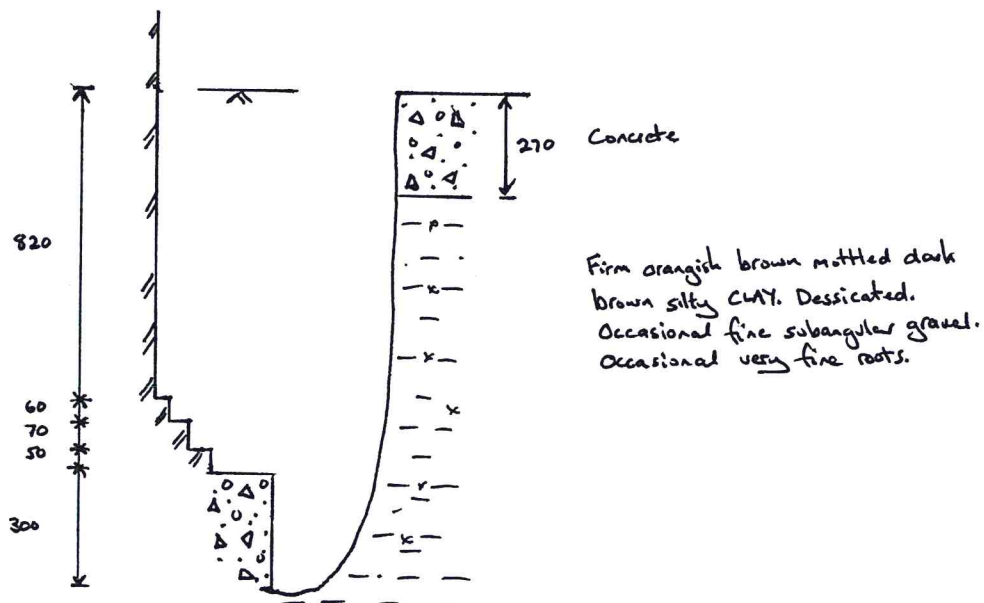 270 Concrete
820
Firm orangish brown mottled dark
brown silty CLAY. Dessicated.
Occasional fine subangular gravel.
Occasional very fine roots.
60
70
50
300